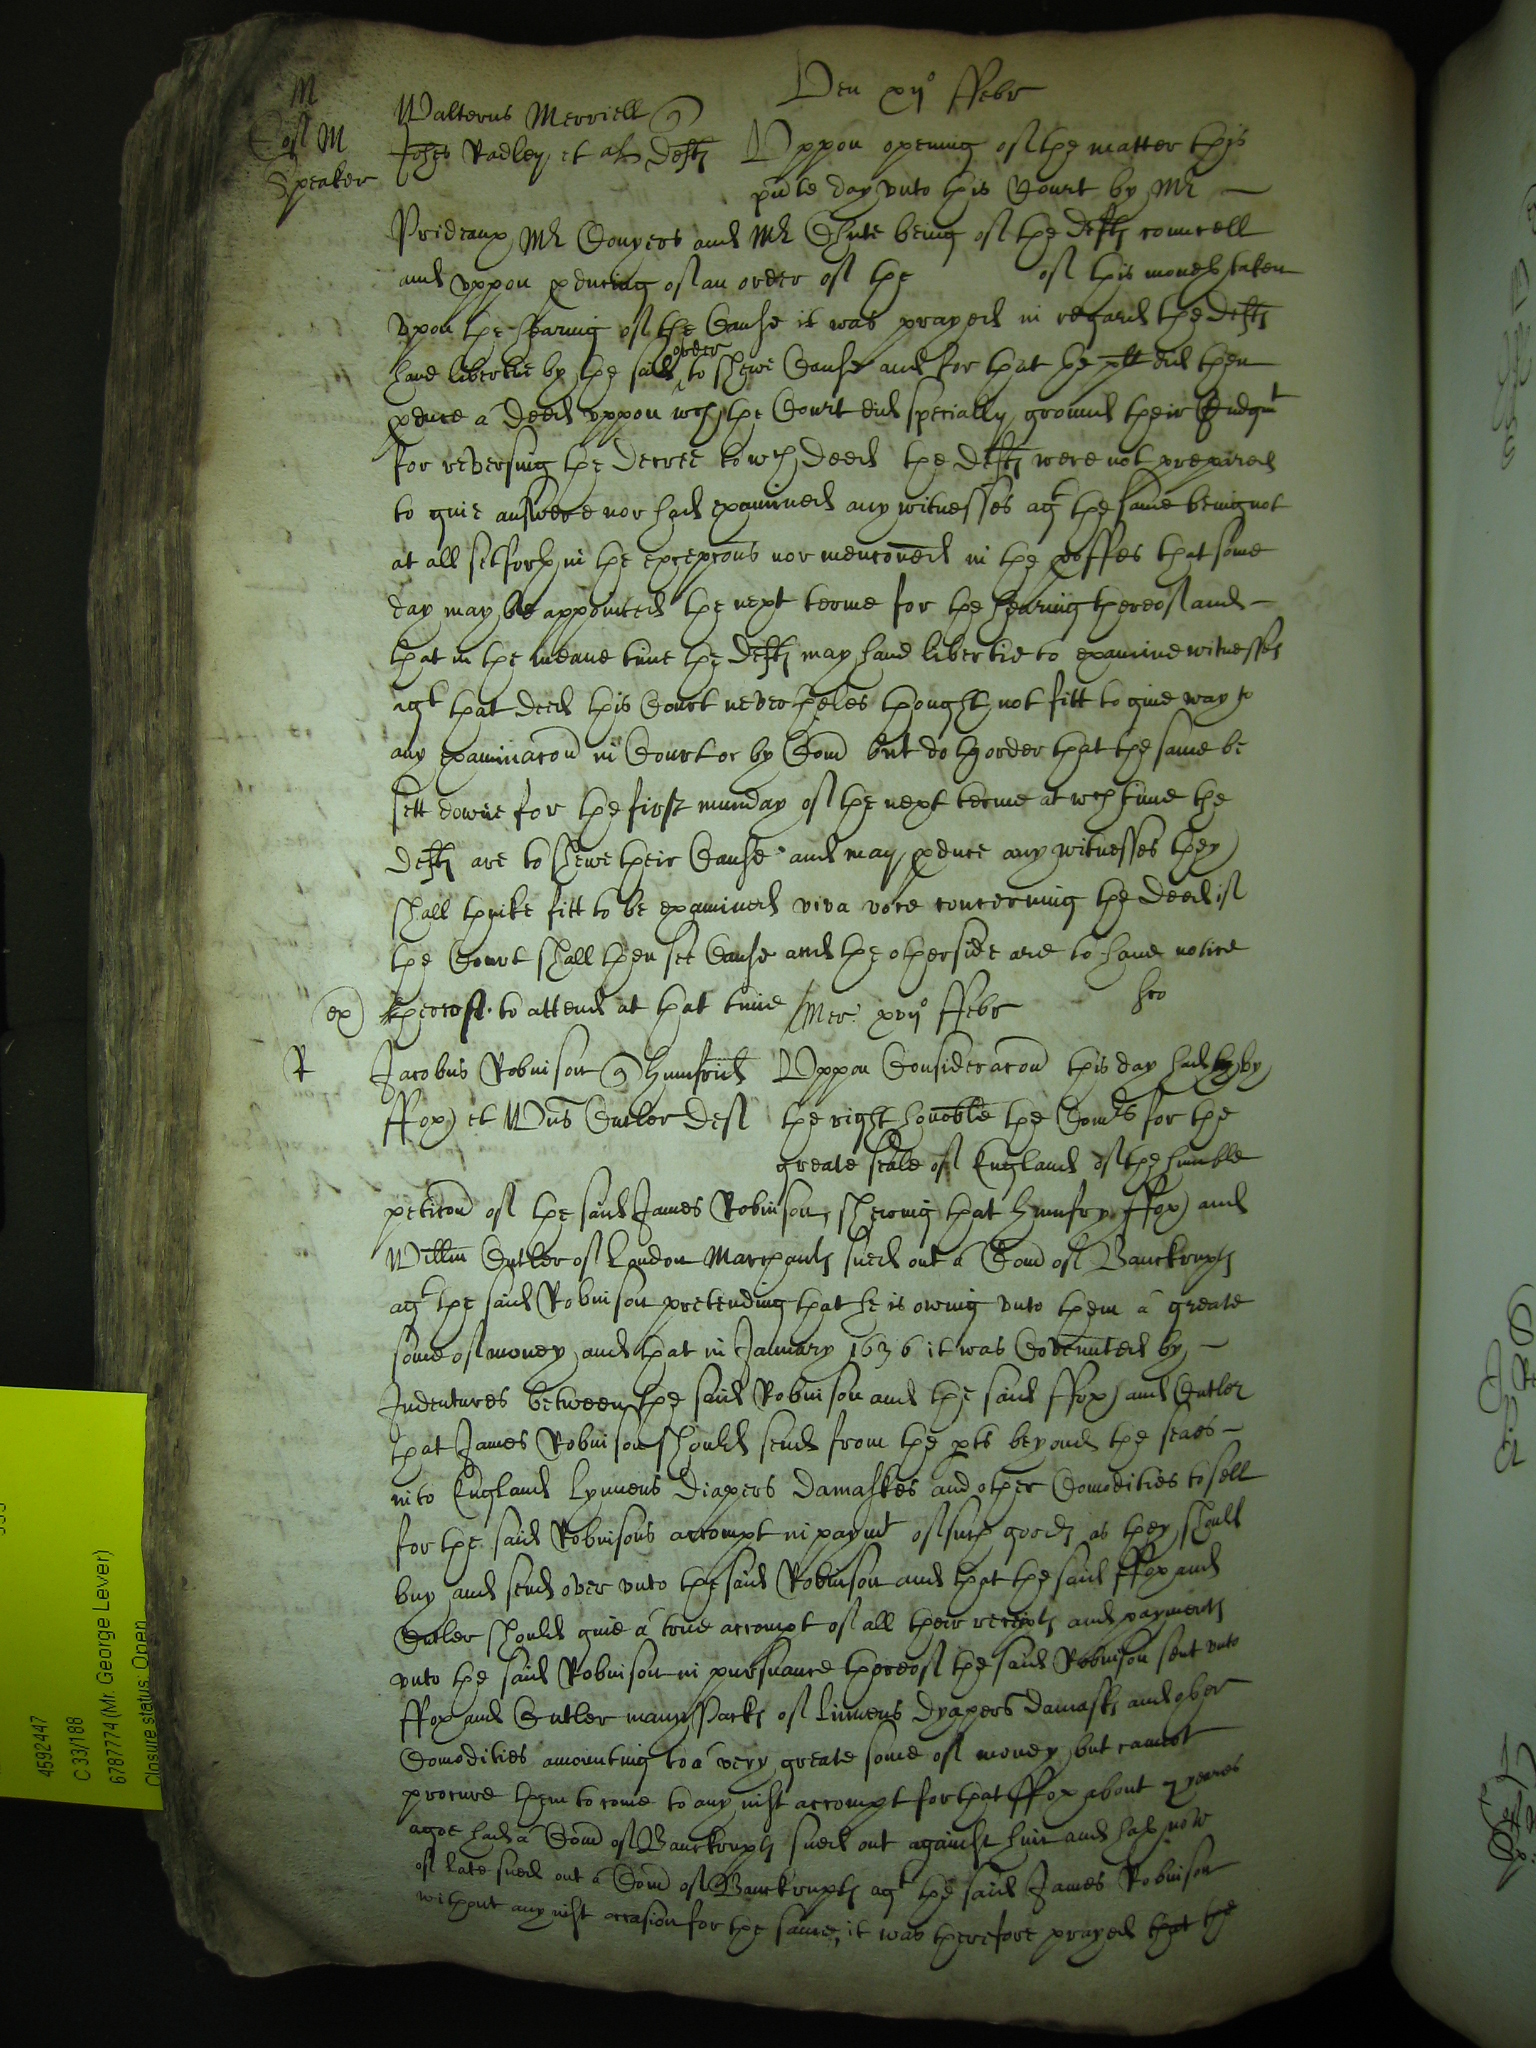 Ven xij° ffebr
M
Walterus Merriell q
Co: M
Speaker
Johes Radley et als Defts Vppon opening of the matter this
pnte day vnto this Court by Mr
Prideaux Mr Conyers and Mr Chute being of the defts councell
and vppon pducing of an order of the of this moneth taken
vpon the hearing of the Cause it was prayed in regard the defts
haue libertie by the said order to shewe Cause and for that the plt did then
pduce a deed vppon wch the Court did specially ground their Judgmt
for reversing the decree to wch deed the defts were not prepared
to giue answere nor had examined any witnesses agt the same being not
at all sett forth in the excepcons nor mencioned in the proffes that some
day may be appointed the next terme for the hearing thereof and
that in the meane time the defts may haue libertie to examine witnesses
agt that deed this Court nevertheles thought not fitt to giue way to
any examinacon in Court or by Com but doth order that the same be
sett downe for the first munday of the next terme at wch time the
defts are to shewe their Cause and may pduce any witnesses they
shall thinke fitt to be examined viva voce concerning the deed if
the Court shall then see Cause and the other side are to haue notice
ex thereof to attend at that time
Mer: xvij° ffebr
R
Jacobus Robinson q humfrid Vppon Consideracon this day had by by
ffox et Wms Cutler Def the right honoble the Comrs for the
greate seale of England of the humble
peticon of the said James Robinson, shewing that Humfry ffox and
Willm Cutler of London Marchants sued out a Com of Banckrupts
agt the said Robinson pretending that he is owing vnto them a greate
some of money and that in January 1636 it was Covenanted by
Indentures between the said Robinson and the said ffox and Cutler
that James Robinson should send from the pts beyond the seaes
into England Lynnens Diapers Damaskes and other Comodities to sell
for the said Robinsons accompt in paymt of such goods as they should
buy and send over vnto the said Robinson and that the said ffox and
Cutler should giue a true accompt of all their receipts and payments
vnto the said Robinson in pursuance thereof the said Robinson sent vnto
ffox and Cutler many Packs of Linnens Dyapers Damasks and other
Comodities amounting to a very greate some of money but cannot
procure them to come to any iust accompt for that ffox about 7 yeares
agoe had a Com of Banckrupts sued out against him and hath now
of late sued out a Com of Banckrupts agt the said James Robinson
without any iust occasion for the same, it was therefore prayed that the
4592447
C 33/188
6787774 (Mr. George Lever)
Closure status: Open